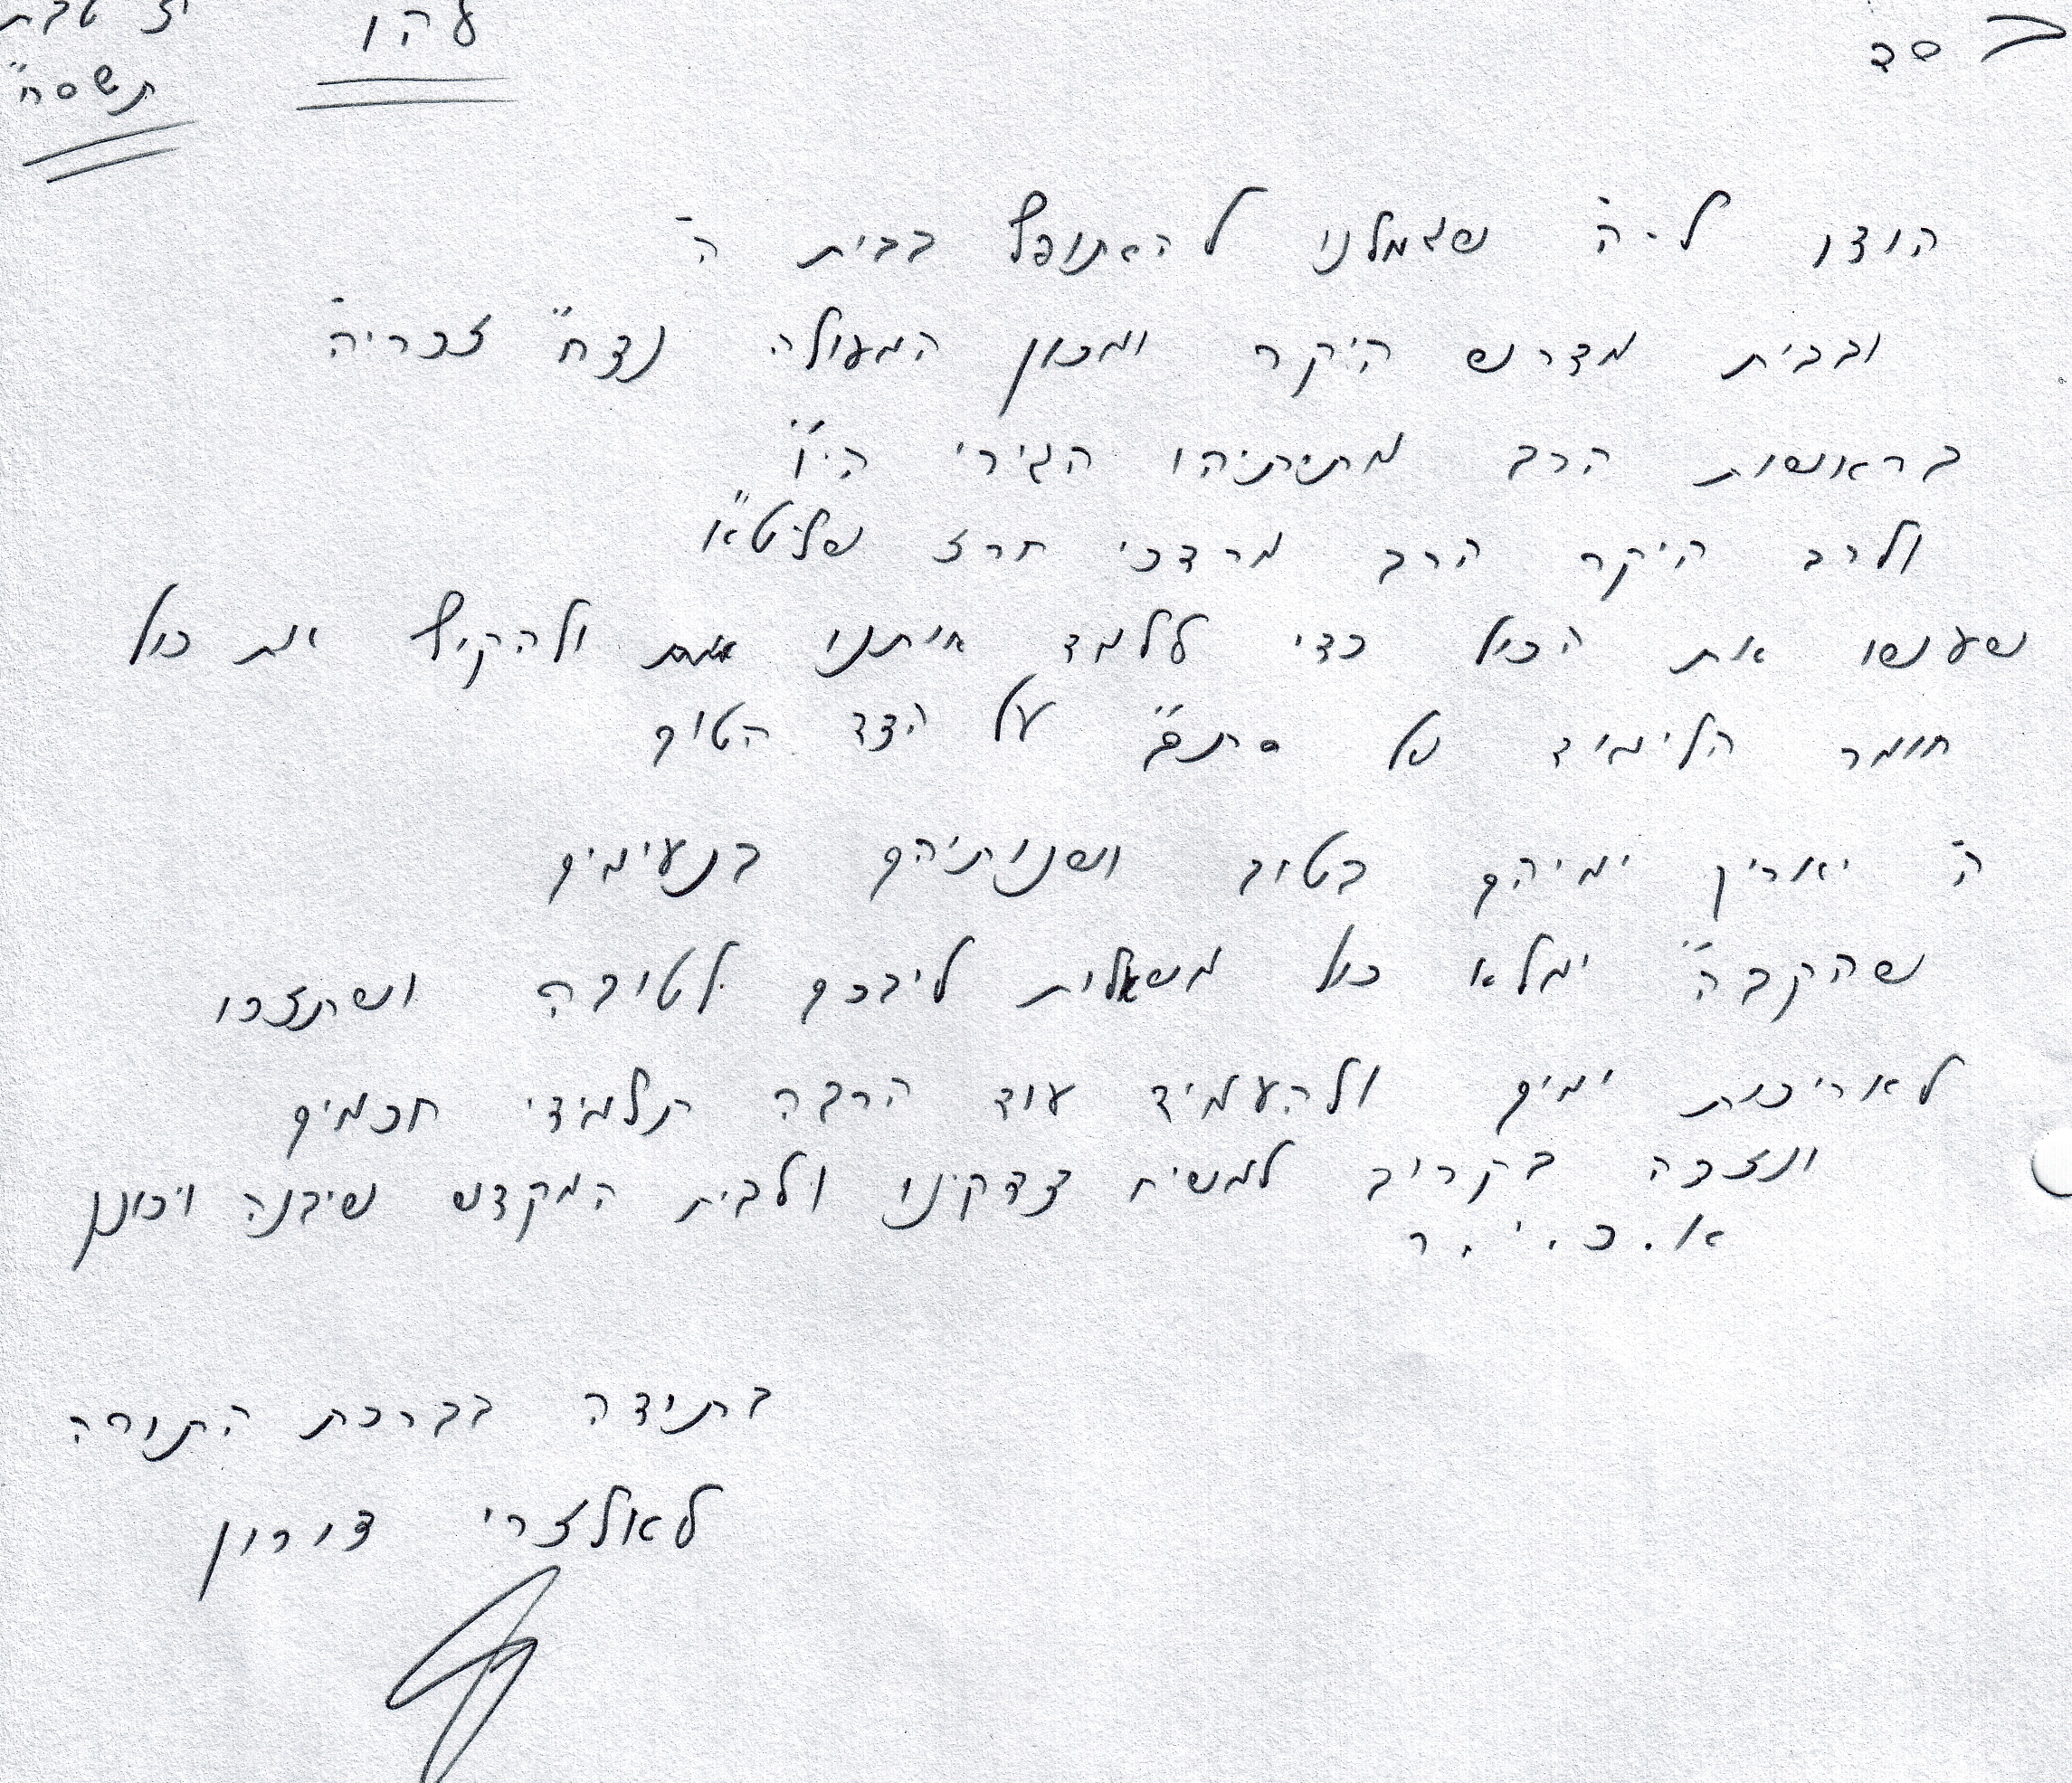 עהו יז טבת
תשסח"
הודו ל-ה' שגמלנו להאתופף בבית ה'
ובבית מדרש היקר ומכון המעולה נצח" זכריה'
בראשות הרב מתיתיהו הגירי הי"ו
ולרב היקר הרב מרדכי חרז שליט"או
שעשו את הכול כדי ללמד איתנו ולהקיף את כול
חומר הלימוד של סתם" על הצד הטוב
ה' יאריך ימיהם בטוב ושנותיהם בנעימים
שהקבה" ימלא כול משאלות ליבכם לטובה ושתזכו
לאריכות ימים ולהעמיד עוד הרבה תלמידי חכמים
ונזכה בקרוב למשיח צדקינו ולבית המקדש שיבנה ויכונן
א.כ.י.ר
בתודה בברכת התורה
לאולזרי דורון